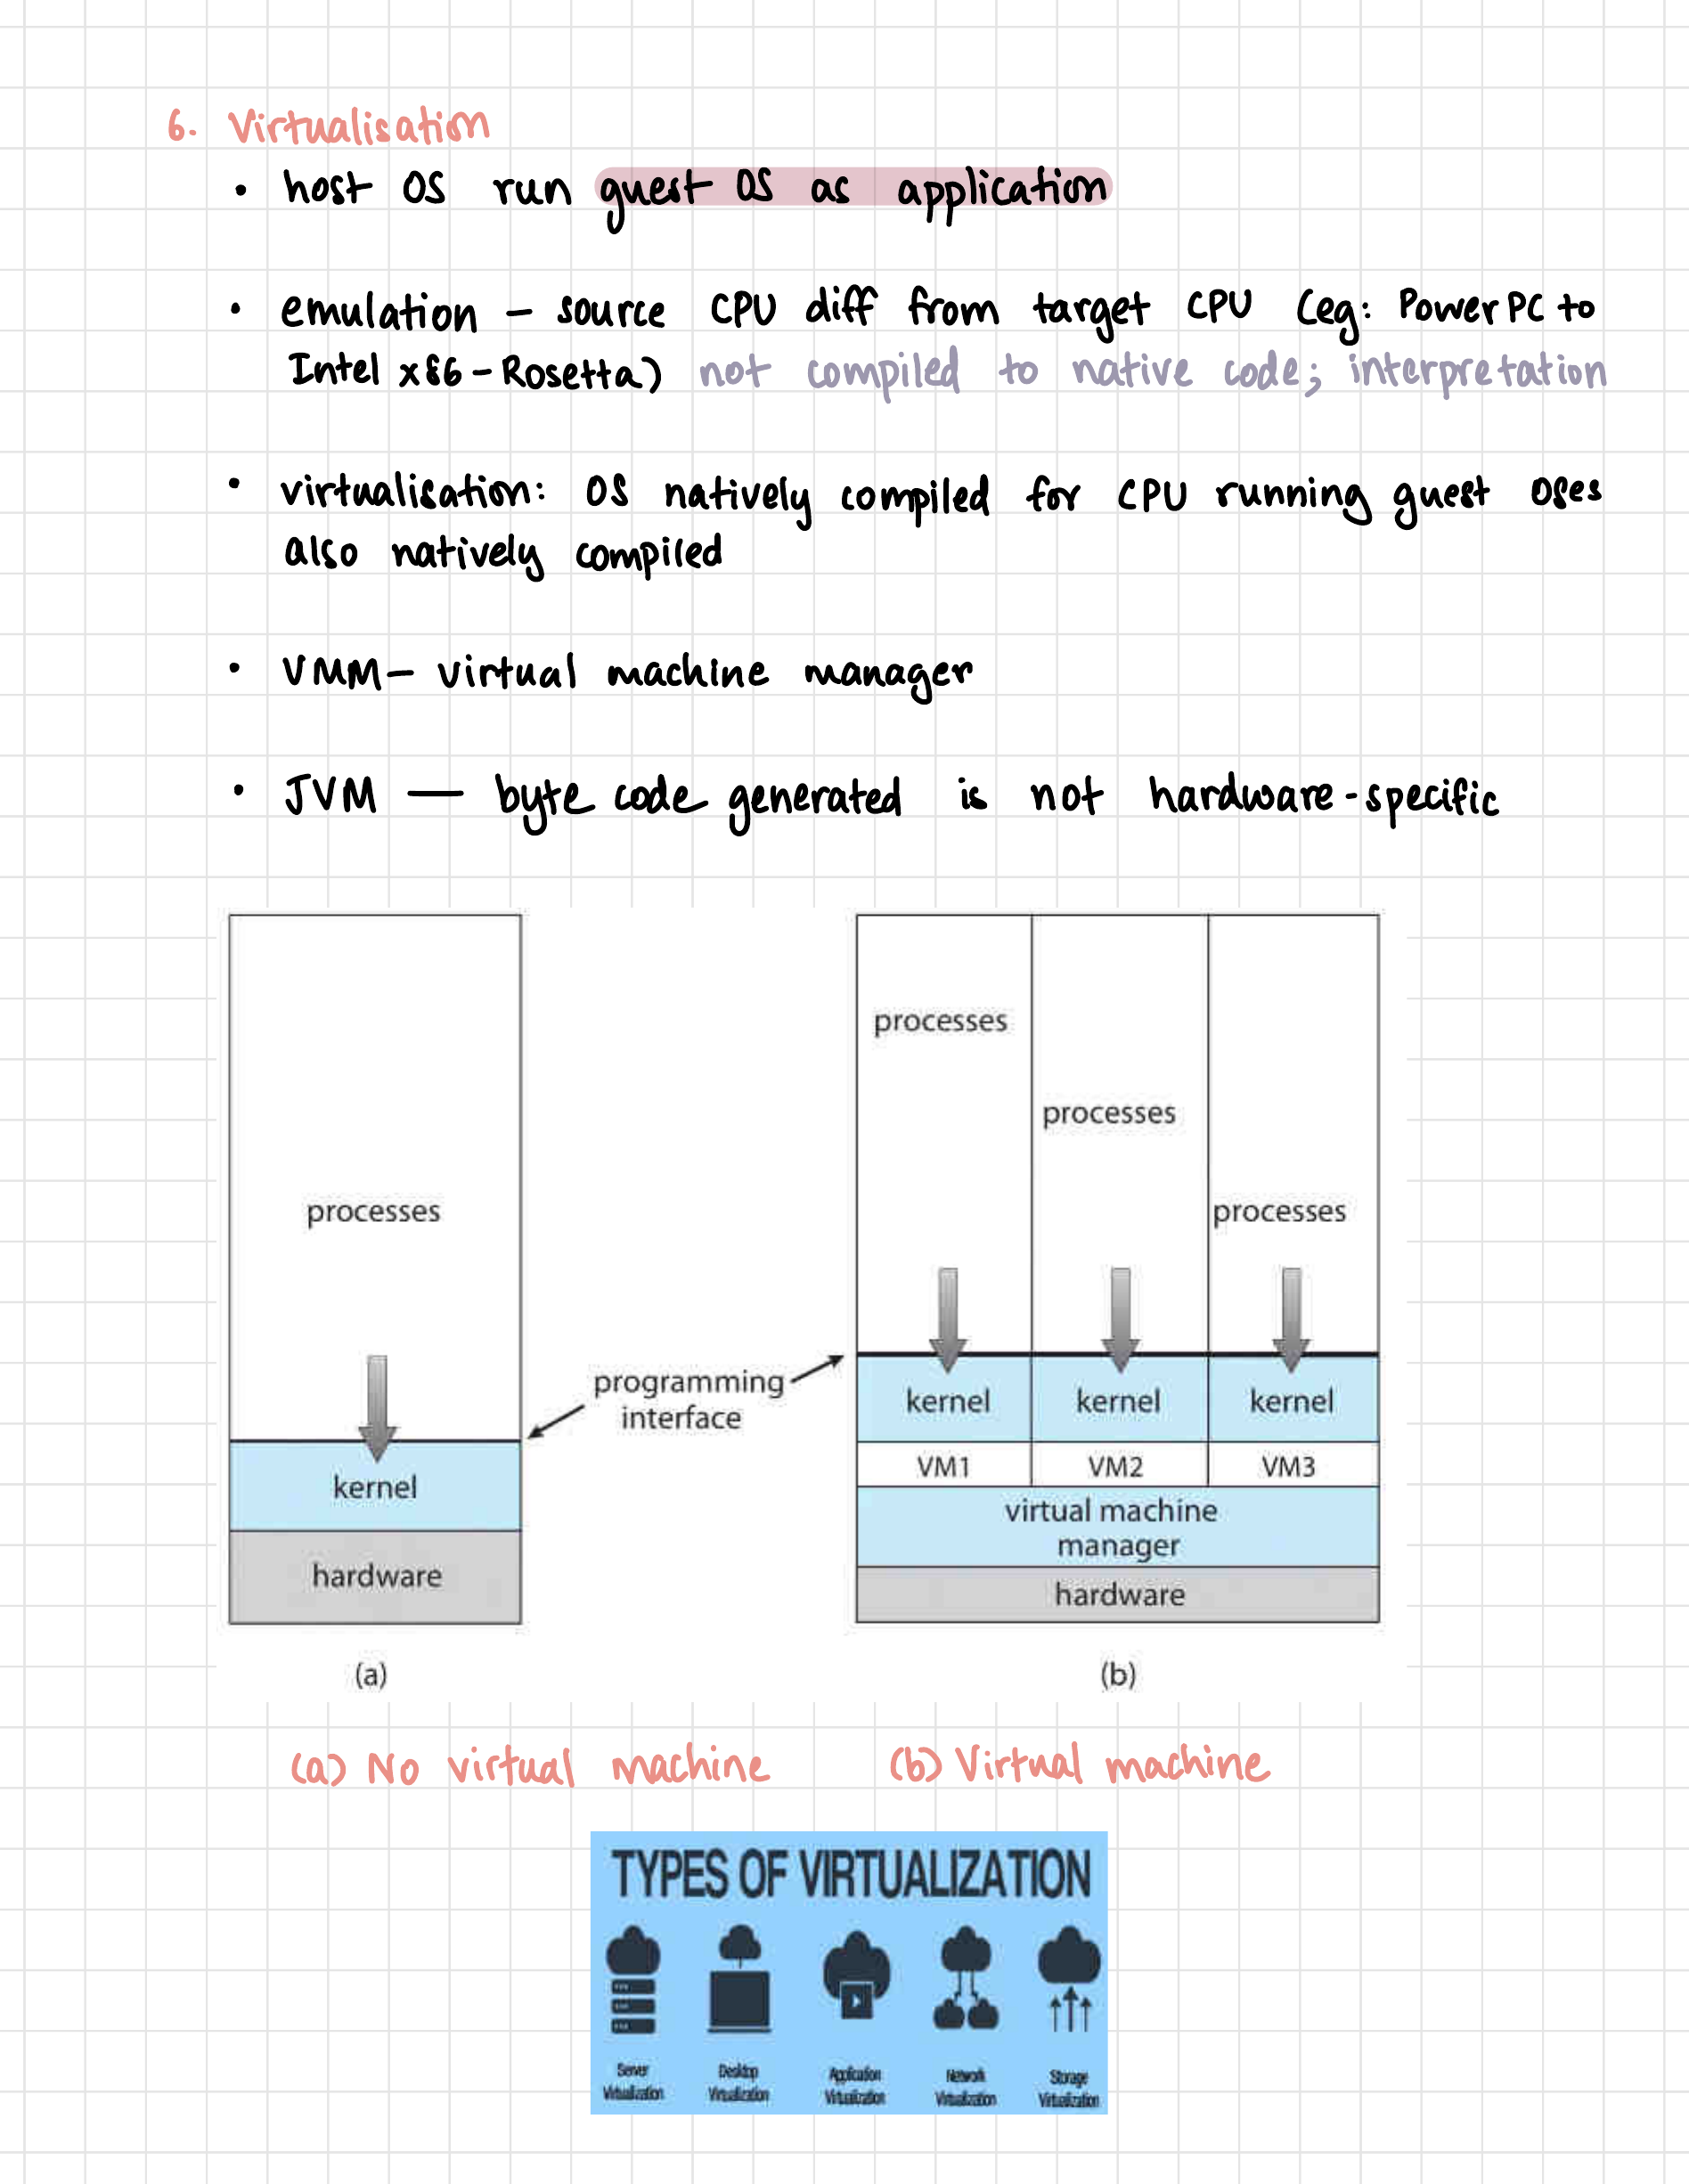 6. Virtualisation
• host OS run guest OS as application
• emulation – source CPU diff from target CPU (eg: PowerPC to
Intel x86 – Rosetta) not compiled to native code; interpretation
• virtualisation: OS natively compiled for CPU running guest OSes
also natively compiled
• VMM – virtual machine manager
• JVM — byte code generated is not hardware-specific
processes
kernel
hardware
(a)
programming
interface
processes
processes
processes
kernel kernel kernel
VM1 VM2 VM3
virtual machine
manager
hardware
(b)
(a) No virtual machine (b) Virtual machine
TYPES OF VIRTUALIZATION
Server Desktop Application Network Storage
Virtualization Virtualization Virtualization Virtualization Virtualization